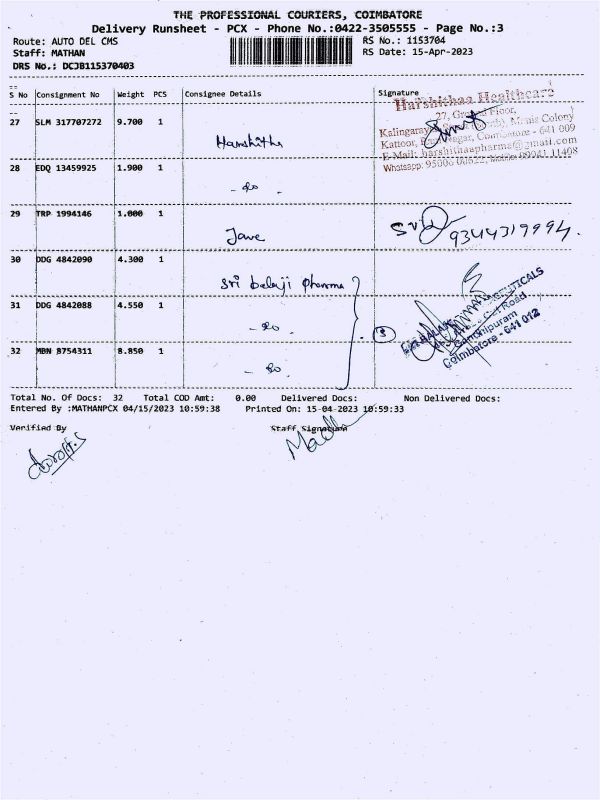 THE PROFESSIONAL COURIERS, COIMBATORE
Delivery Runsheet - PCX - Phone No.:0422-3505555 - Page No.:3
Route: AUTO DEL CMS RS No.: 1153704
Staff: MATHAN RS Date: 15-Apr-2023
DRS No.: DCJB115370403
S No Consignment No Weight PCS Consignee Details Signature
Harshithaa Healthcare
27 SLM 317707272 9.700 1 Harshitha
27, Ground Floor,
Colony
Kattoor, Nagar, Coimbatore - 641 009
E-Mail: harshithaapharma@gmail.com
Whatsapp: 95006 00622, 09041 11408
28 EDQ 13459925 1.900 1 - do -
29 TRP 1994146 1.000 1 Jave 9344319994.
30 DDG 4842090 4.300 1 Sri balaji pharma
31 DDG 4842088 4.550 1 - do - 3
Road
Gandhipuram
Coimbatore - 641 012
32 MBN 8754311 8.850 1 - do -
Total No. Of Docs: 32 Total COD Amt: 0.00 Delivered Docs: Non Delivered Docs:
Entered By :MATHANPCX 04/15/2023 10:59:38 Printed On: 15-04-2023 10:59:33
Verified By Staff Signature